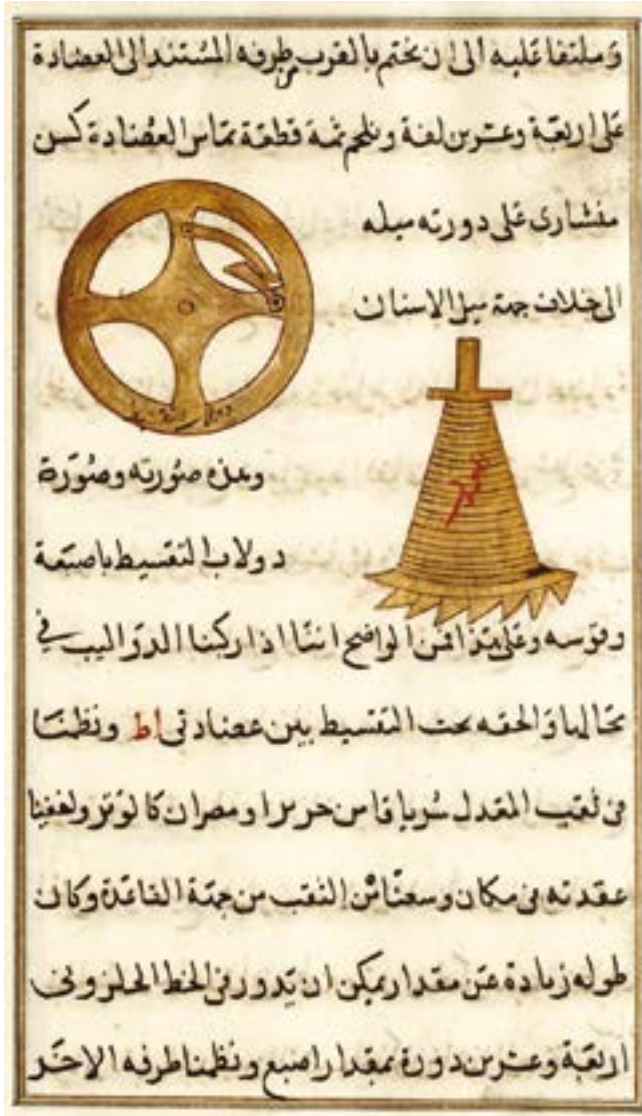 وملتفا عليه الى ان يختم بالقرب من طرفه المستند الى العضادة
على اربعة وعشرين لفة ونلحم ثمة قطعة تماس العضادة كسن
منشارى على دورته ميله
الى خلاف جهة ميل الاسنان
وهذه صورته وصورة
دولاب التقسيط باصبعة
وقوسه وعلى هذا فمن الواضح اننا اذا ركبنا الدواليب في
محالها والحقه تحت التقسيط بين عضادتى اط ونظمنا
فى ثقب المعدل شرياقا من حرير او مصران كالوتر ولففينا
عقدته فى مكان وسعناه من الثقب من جهة القاعدة وكان
طوله زيادة عن مقدار يمكن ان يدور فى الخط الحلزونى
اربعة وعشرين دورة بمقدار اصبع ونظمنا طرفه الاخر